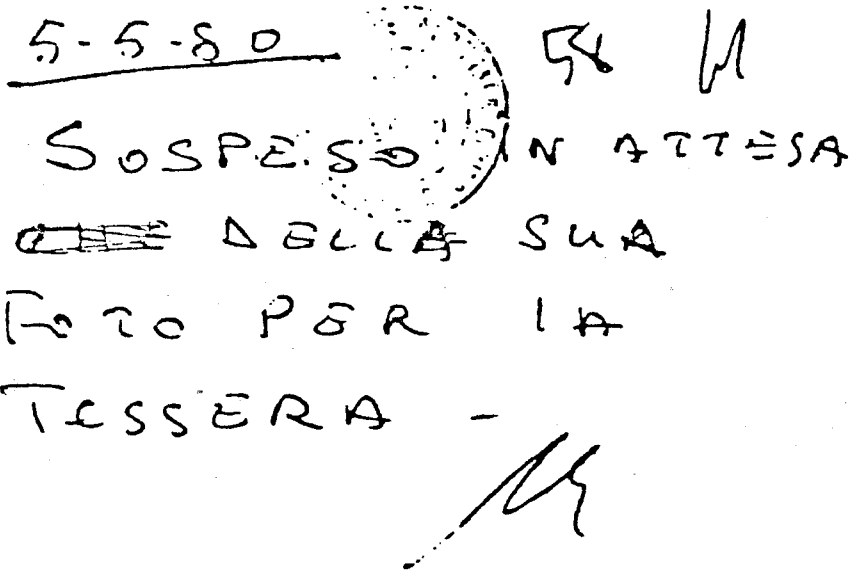 5-5-80 58
SOSPESO IN ATTESA
DELLA SUA
FOTO PER LA
TESSERA -